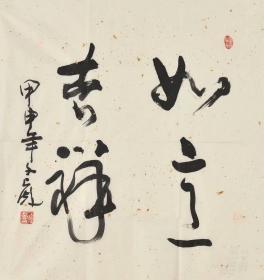 如意
吉祥
甲申年